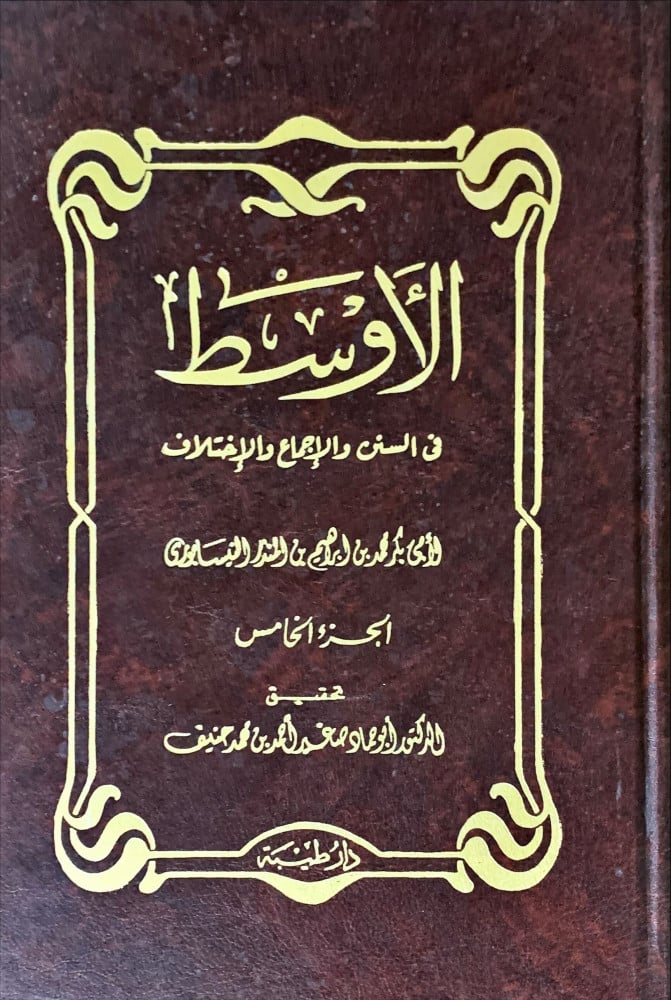 الأَوْسَط
في السنن والإجماع والإختلاف
لأبي بكر محمد بن ابراهيم بن المنذر النيسابوري
الجزء الخامس
تحقيق
الدكتور أبو حماد صغير أحمد بن محمد حنيف
دار طيبة